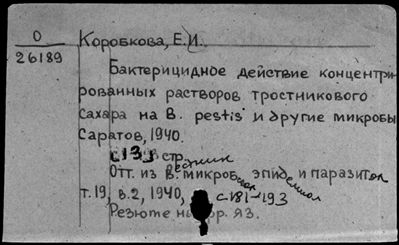 О
26189
Коробкова, Е.И.
Бактерицидное действие концентри-
рованных растворов тростникового
сахара на B. pestis и другие микробы
Саратов, 1940.
13 стр.
Отт. из Вестник микробиол эпидемиол и паразитол
т.19, в.2, 1940, с 181-193
Резюме на яз.